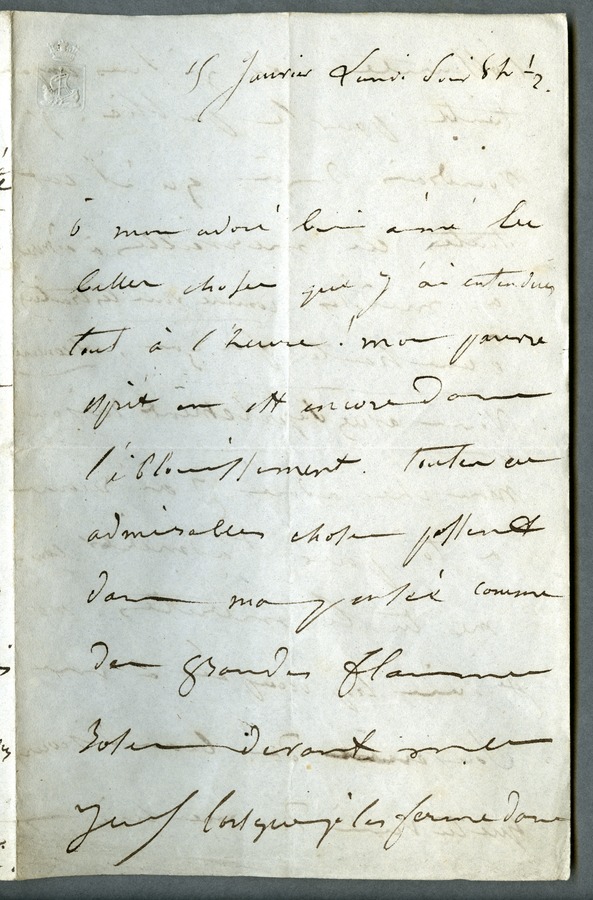 15 Janvier Lundi Soir 8h 1/2.
ô mon adoré bien aimé les
belles choses que j'ai entendues
tout à l'heure ! mon pauvre
esprit en est encore dans
l'éblouissement. Toutes ces
admirables choses passent
dans ma pensée comme
des grandes flammes
devant mes
yeux lorsque je les ferme dans